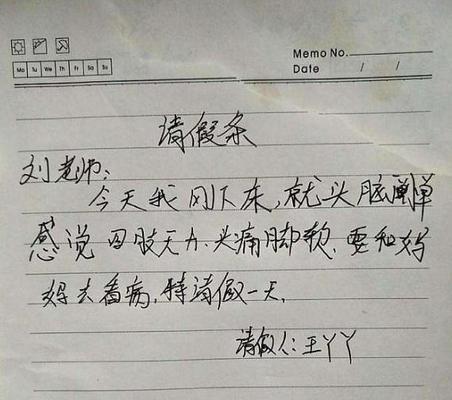 Memo No.
Mo Tu We Th Fr Sa Su
Date / /
请假条
刘老师:
今天我刚下床,就头脑
感觉四肢无力、头痛脚软,要和妈
妈去看病,特请假一天。
请假人:王丫丫